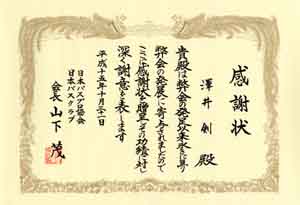 感謝状
澤井 剣 殿
貴殿は弊会の発足以来永きに亘り
弊会の発展に寄与されましたので
ここに感謝状を贈呈しその功績に対し
深く謝意を表します
平成十五年十月二十一日
日本バスプロ協会
日本バスクラブ
会長 山下 茂